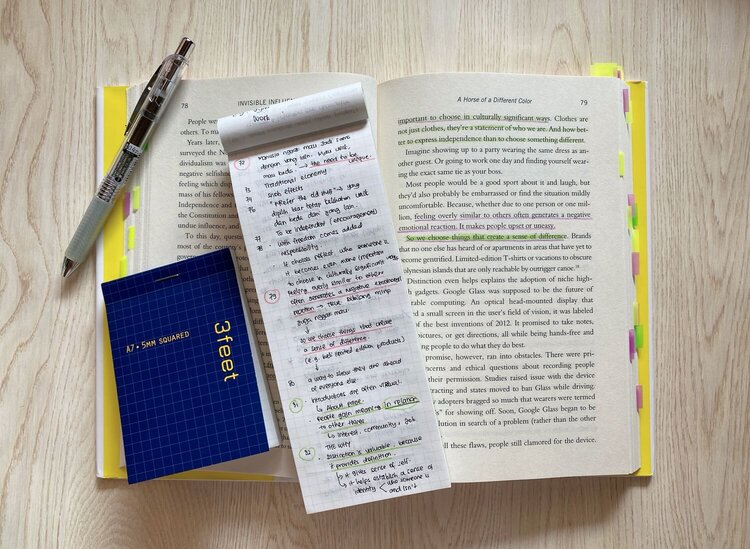 78
INVISIBLE INFLU
People we
others. To ma
Years later,
surveyed the N
dividualism was
negative selfishness
feeling which disp
mass of his fellows
Independence and
the Constitution and
undue influence, and
To this day,
most of the country's
A7 • 5MM SQUARED
3feet
Work.
72
manusia nggak mau jadi sama
dengan yang lain. Mau unik,
mau beda → the need to be
unique.
73 Traditional economy
74 Snob effects
76 "Prefer the old stuff" → yang
dipilih biar tetap kelihatan unik
dan beda dari yang lain.
77 To be independent (encouragement)
78 with freedom comes added
responsibility
It choices reflect who someone is
it becomes even more important
to choose in culturally significant ways
79
Feeling overly similar to others
often generates a negative emotional
reaction → true
so we choose things that create
a sense of difference.
(e.g. beli limited edition products)
80 a way to show they are ahead
of everyone else
81
Introductions are often virtual.
↳ About page.
People gain meaning in relation
to other things
↳ interest, community, job
THE WHY
82
Distinction is valuable, because
it provides definition.
↳ it gives sense of self.
↳ it helps establish a sense of
identity
who someone is
and isn't
A Horse of a Different Color
79
important to choose in culturally significant ways. Clothes are
not just clothes, they're a statement of who we are. And how bet-
ter to express independence than to choose something different.
Imagine showing up to a party wearing the same dress as an-
other guest. Or going to work one day and finding yourself wear-
ing the exact same tie as your boss.
Most people would be a good sport about it and laugh, but
they'd also probably be embarrassed or find the situation mildly
uncomfortable. Because, whether due to one person or one mil-
lion, feeling overly similar to others often generates a negative
emotional reaction. It makes people upset or uneasy.
So we choose things that create a sense of difference. Brands
that no one else has heard of or apartments in areas that have yet to
become gentrified. Limited-edition T-shirts or vacations to obscure
Polynesian islands that are only reachable by outrigger canoe.
Distinction even helps explains the adoption of niche high-
h gadgets. Google Glass was supposed to be the future of
rable computing. An optical head-mounted display that
d a small screen in the user's field of vision, it was labeled
of the best inventions of 2012. It promised to take notes,
pictures, or get directions, all while being hands-free and
ing people to do what they do best.
promise, however, ran into obstacles. There were pri-
cerns and ethical questions about recording people
their permission. Studies raised issue with the device
tracting and states moved to ban Glass while driving.
adopters bragged so much that wearers were termed
" for showing off. Soon, Google Glass began to be
olution in search of a problem (rather than the other
ll these flaws, people still clamored for the device.